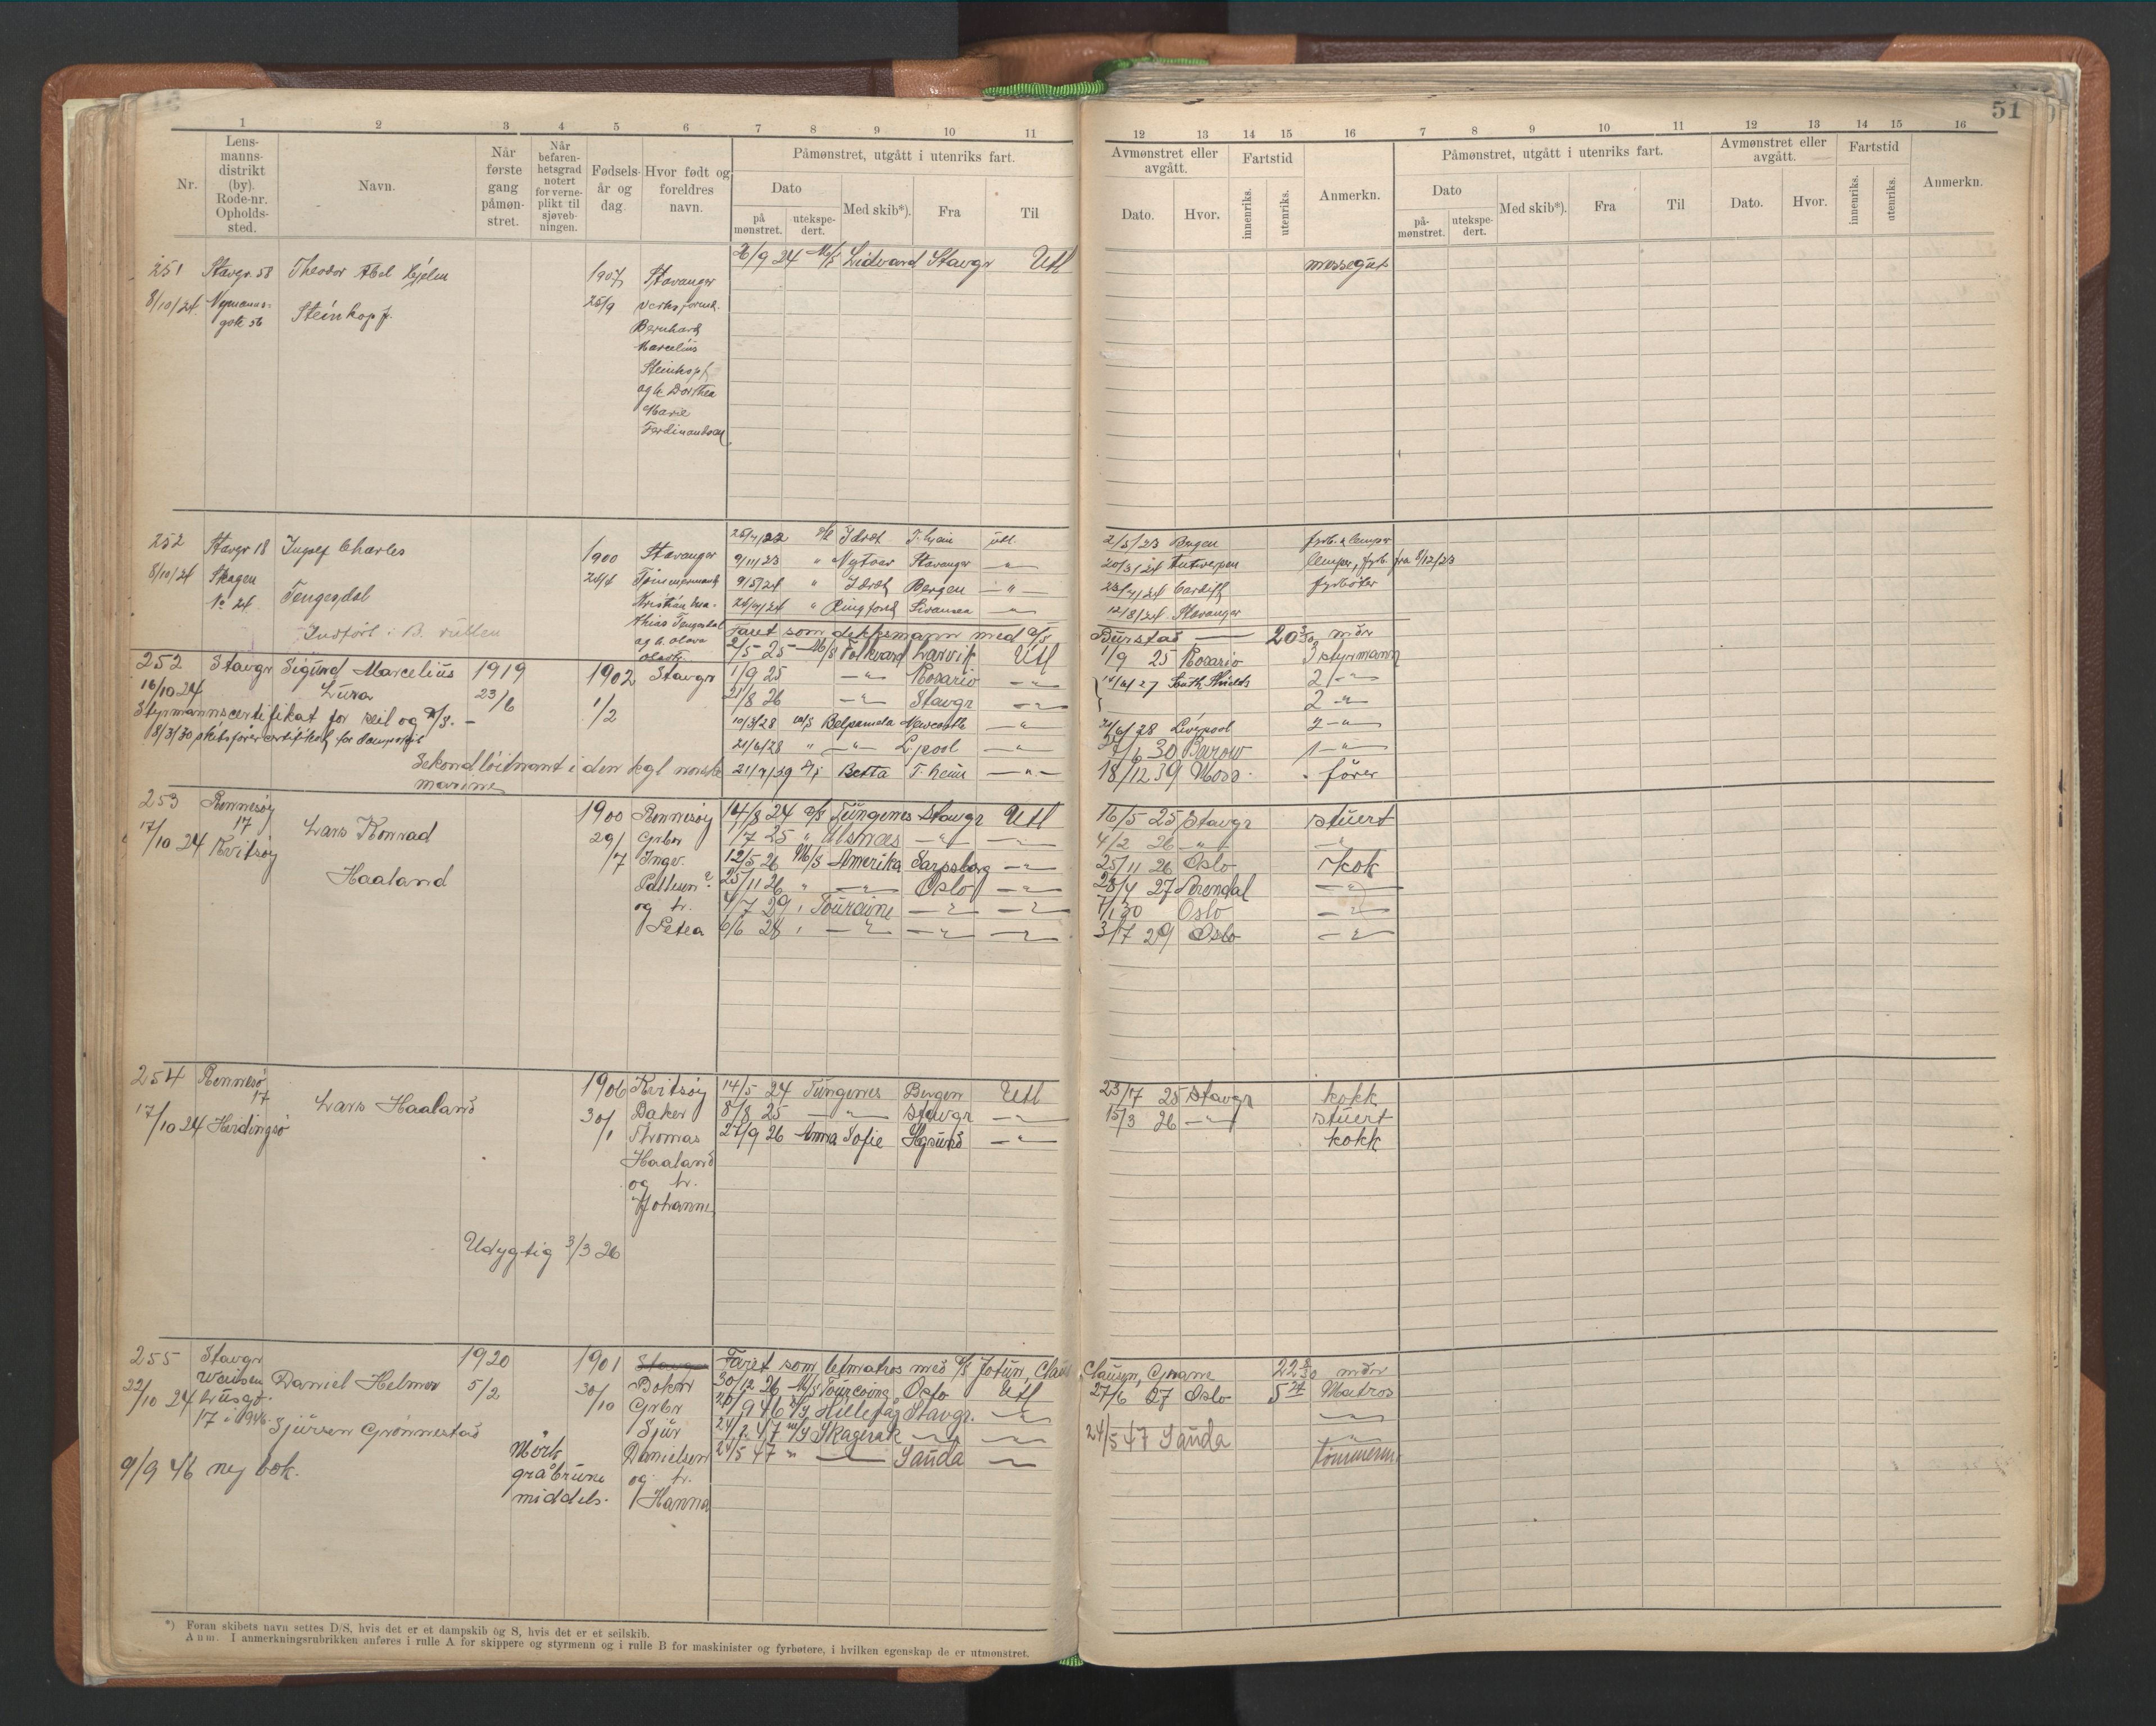 51
1 2 3 4 5 6 7 8 9 10 11
12 13 14 15 16 7 8 9 10 11 12 13 14 15 16
Nr.
Lens-
manns-
distrikt
(by).
Rode-nr.
Opholds-
sted.
Navn.
Når
første
gang
påmøn-
stret.
Når
befaren-
hetsgrad
notert
for verne-
plikt til
sjøveb-
ningen.
Fødsels-
år og
dag.
Hvor født og
foreldres
navn.
Påmønstret, utgått i utenriks fart.
Dato
på
mønstret.
utekspe-
dert.
Med skib*).
Fra
Til
Avmønstret eller
avgått.
Dato.
Hvor.
Fartstid
innenriks.
utenriks.
Anmerkn.
Påmønstret, utgått i utenriks fart.
Dato
på-
mønstret.
utekspe-
dert.
Med skib*).
Fra
Til
Avmønstret eller
avgått.
Dato.
Hvor.
Fartstid
innenriks.
utenriks.
Anmerkn.
251 Stavgr. 58 Theodor Abel 1907 Stavanger
8/10/24 gate 56 Steinkopf. 25/9
Bernhard
Marcelius
Steinkopf
og h. Dorthea
Marie
Ferdinandsen
/9 24 M/S Lidvard Stavgr Utl messegut
252 Stavgr 18 Ingolf Charles 1900 Stavanger
8/10/24 Skagen
No 24. Tengesdal
Tømmermand
Kristian Ma-
thias Tengesdal
og h. Olava
Indført i B. rullen
Idræt utl 2/5/23 Bergen fyrb. & lemper
9/11/23 " Nytaar Stavanger —"— 20/3/24 Antwerpen lemper, fyrb. fra 8/12/23
9/5/24 " Idræt Bergen —"— Cardiff fyrbøter
" Ringfond Swansea —"— 12/8/24 Stavanger
Faret som dekksmann med D/S Burstad — mdr
252 Stavgr Sigurd Marcelius 1919 1902 Stavgr
16/10 24 Lura 23/6 1/2
Styrmannscertifikat for seil og D/S. —
8/3/30 skibsførercertifikat for dampskib
Sekondløitnant i den kgl norske
marine
2/5 25 M/S Folkvard Larvik Utl 1/9 25 Rosario 3 styrmann
1/9 25 —"— Rosario —"— South Shields 2 —"—
21/8 26 —"— Stavgr —"— 2 —"—
10/3/28 M/S Belpamela Newcastle —"— 21/6/28 Liverpool 2 —"—
21/6/28 " —"— L.pool —"— 30 Barow 1 —"—
D/S Betta T. heim —"— 18/12 39 Moss. fører
253 Rennesøy 17 Lars Konrad 1900 Rennesøy
17/10 24 Kvitsøy Haaland 29/7 Grbr
Ingv.
og h.
Petea
14/8 24 D/S Tungenes Stavgr Utl 16/5 25 Stavgr stuert
1/7 25 " Ulstnæs —"— —"— 4/2 26 —"— —"—
12/5 26 M/S Amerika Sarpsborg —"— 25/11 26 Oslo Kok
25/11 26 " —"— Oslo —"— 28/4 27 Arendal —"—
4/7 29 " Touraine —"— —"— 7/1 30 Oslo —"—
6/6 28 " —"— —"— —"— 3/7 29 Oslo —"—
254 Rennesø 17 Lars Haaland 1906 Kvitsøy
17/10 24 30/1 Baker
Thomas
Haaland
og h.
Johanne
Udygtig 3/3 26
14/5 24 Tungenes Bergen Utl 25 Stavgr kokk
8/8 25 —"— Stavgr —"— 15/3 26 —"— stuert
27/9 26 Anna Sofie Hgsund —"— kokk
255 Stavgr Daniel Helmer 1920 1901 Stavgr
22/10 24 5/2 30/10 Bokn
Grbr
17/9 1946 Sjursen Grønnestad Sjur
Danielsen
og h.
Hanna
9/9 46 ny bok.
Mörk
gråbrune
middels.
Faret som letmatros med D/S Jotun, Clausen, Gnane mdr
30/12 26 M/S Tourcoing Oslo Utl 27/6 27 Oslo Matros
Hillefåg Stavgr. —"— —"—
Skagerak —"— —"— 24/5 47 Sauda —"—
24/5 47 " —"— Sauda —"— tömmerm.
*) Foran skibets navn settes D/S, hvis det er et dampskib og S, hvis det er et seilskib.
Anm. I anmerkningsrubrikken anføres i rulle A for skippere og styrmenn og i rulle B for maskinister og fyrbøtere, i hvilken egenskap de er utmønstret.